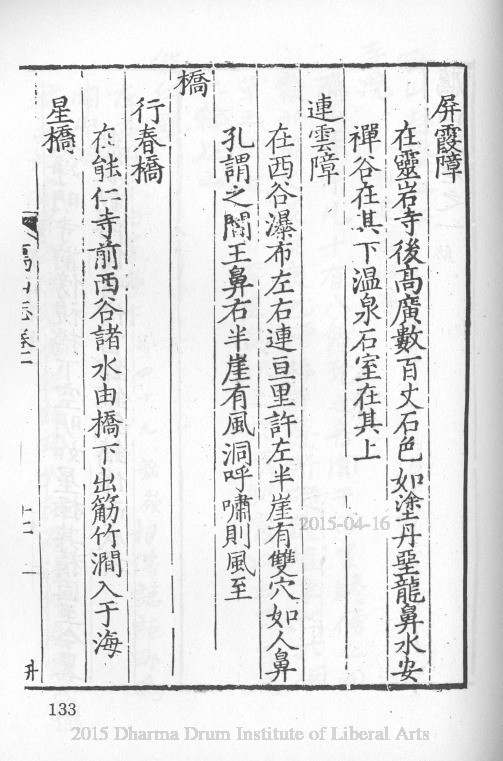 屏霞障
在靈岩寺後高廣數百丈石色如塗丹堊龍鼻水安
禪谷在其下温泉石室在其上
連雲障
在西谷瀑布左右連亘里許左半崖有雙穴如人鼻
孔謂之閻王鼻右半崖有風洞呼嘯則風至
橋
行春橋
在能仁寺前西谷諸水由橋下出筯竹澗入于海
星橋
山志卷二
2015-04-16
133
2015 Dharma Drum Institute of Liberal Arts